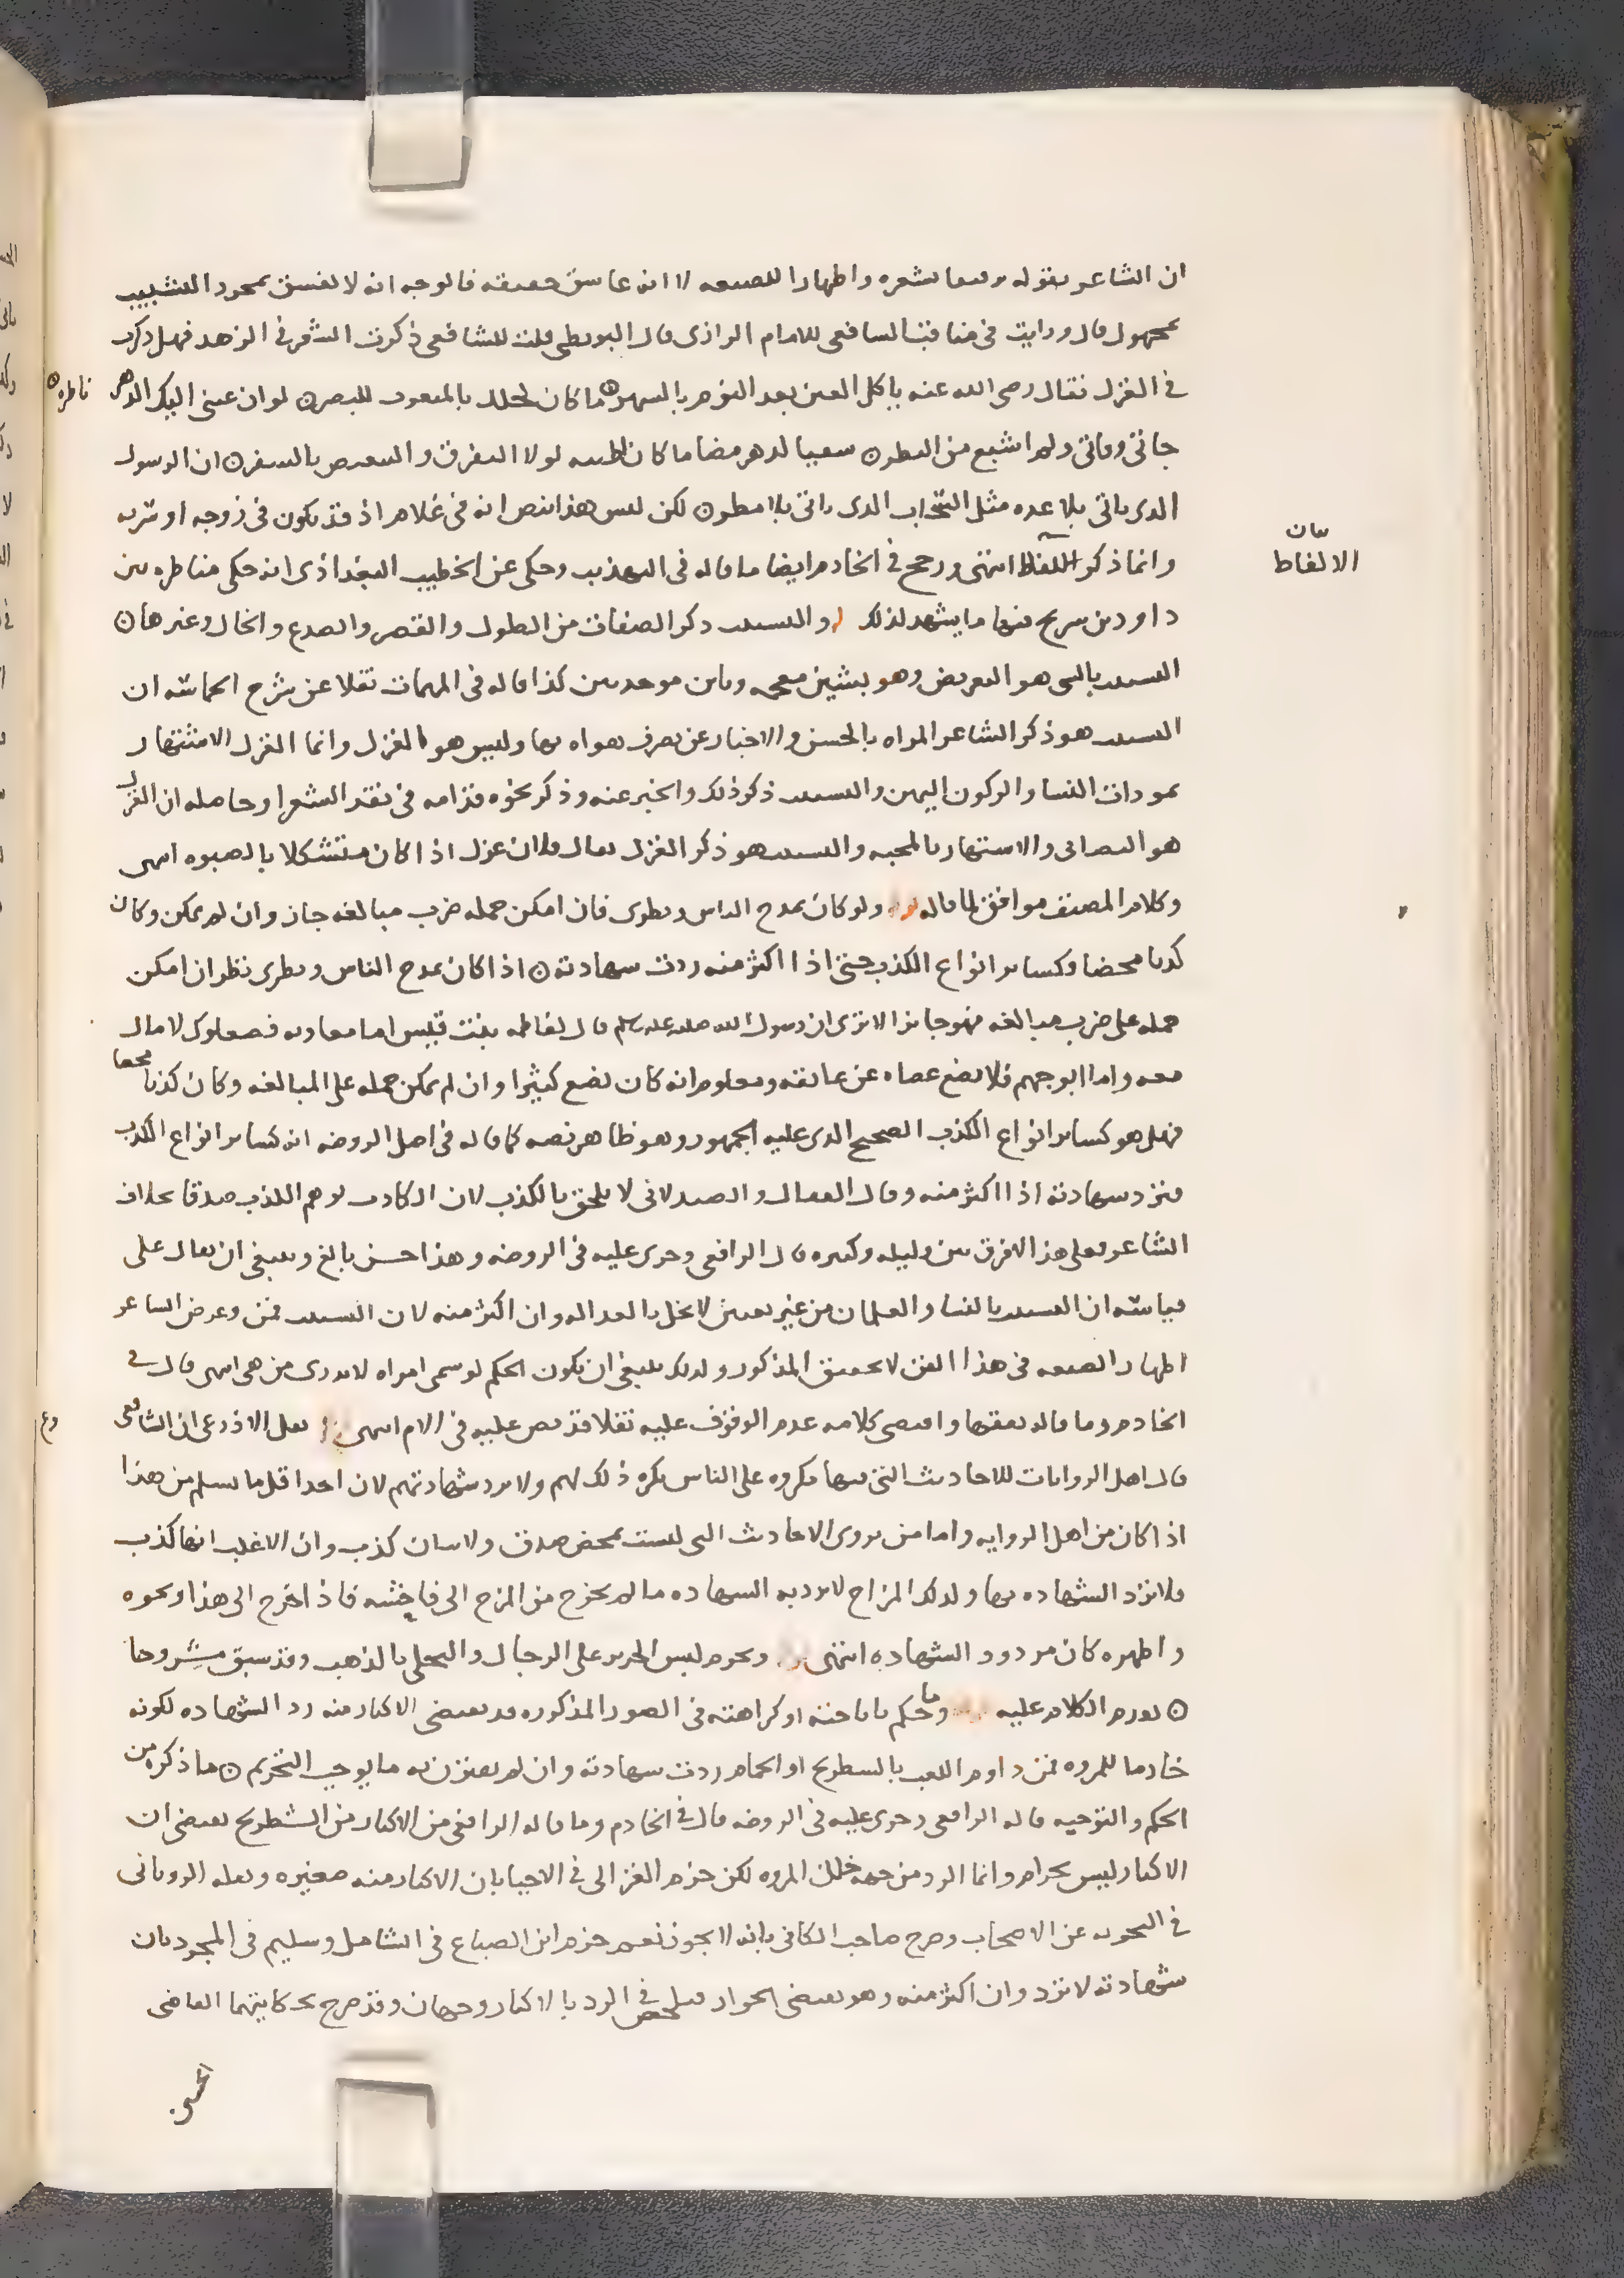 ان الشاعر يقوله ترنما بشعره واظهارا للصنعه لا انه عاشق حقيقه فالوجه انه لا يفسق بمجرد التشبيب
بمجهول قال ورايت في مناقب الشافعي للامام الرازي قال البويطي قلت للشافعي ذكرت الشعر في الزهد فهل ذكرت
في الغزل فقال رضي الله عنه يا كحل العين بعد النوم بالسهر ه ما كان كحلك بالمنعوت للبصر ه لو ان عيني اليك الدهر ناظره ه
جاتي وفاتي ولم اشبع من النظر ه سقيا لدهر مضا ما كان اطيبه لولا التفرق والتنغيص بالسفر ه ان الرسول
الذي ياتي بلا عده مثل السحاب الذي ياتي بلا مطر ه لكن ليس هذا بنص انه في غلام اذ قد يكون في زوجه او سريه
وانما ذكر اللفظ انتهى ورجح في الخادم ايضا ما قاله في التهذيب وحكى عن الخطيب البغدادي انه حكى مناظره بين
بيان
الالفاظ
داود بن سريج فيها ما يشهد لذلك والتشبيب ذكر الصفات من الطول والقصر والصدغ والخال وغيرها ه
التشبيب بالشي هو التعريض وهو بشين معجمه وباين موحدتين كذا قاله في المهمات نقلا عن شرح الحماسه ان
التشبيب هو ذكر الشاعر المراه بالحسن والاخبار عن تصرف هواه بها وليس هو الغزل وانما الغزل الاشتهار
بمودات النسا والركون اليهن والتشبيب ذكر ذلك والخبر عنه وذكر نحوه قدامه في نقد الشعر وحاصله ان الغزل
هو التصابي والاستهتار بالمحبه والتشبيب هو ذكر الغزل يقال فلان غزل اذا كان متشكلا بالصبوه انتهى
وكلام المصنف موافق لما قاله ولو كان يمدح الناس ويطري فان امكن حمله ضرب مبالغه جاز وان لم يمكن وكان
كذبا محضا فكسائر انواع الكذب حتى اذا اكثر منه ردت شهادته ه اذا كان يمدح الناس ويطري نظر ان امكن
حمله على ضرب مبالغه فهو جائز الا ترى ان رسول الله صلى الله عليه وسلم قال لفاطمه بنت قيس اما معاويه فصعلوك لا مال
معه واما ابو جهم فلا يضع عصاه عن عاتقه ومعلوم انه كان يضع كثيرا وان لم يمكن حمله على المبالغه وكان كذبا محضا
فهل هو كسائر انواع الكذب الصحيح الذي عليه الجمهور وهو ظاهر نصه كما قاله في اصل الروضه انه كسائر انواع الكذب
فترد شهادته اذا اكثر منه وقال القفال والصيدلاني لا يلحق بالكذب لان الكاذب يوهم الكذب صدقا بخلاف
الشاعر فعلى هذا لا فرق بين قليله وكثيره قال الرافعي وجرى عليه في الروضه وهذا حسن بالغ وينبغي ان يقال على
قياسه ان التشبيب بالنسا والغلمان من غير تعيين لا يخل بالعداله وان اكثر منه لان التشبيب فن وغرض الشاعر
اظهار الصنعه في هذا الفن لا تحقيق المذكور ولذلك ينبغي ان يكون الحكم لو سمى امراه لا يدرى من هي انتهى قال في
الخادم وما قاله تفقها واقتضى كلامه عدم الوقوف عليه نقلا قد نص عليه في الام انتهى نقل الاذرعي ان الشافعي
قال اهل الروايات للاحاديث التي فيها مكروه على الناس يكره ذلك لهم ولا ترد شهادتهم لان احدا قل ما يسلم من هذا
اذا كان من اهل الروايه واما من يروي الاحاديث التي ليست بمحض صدق ولا بيان كذب وان الاغلب انها كذب
فلا ترد الشهاده بها ولذلك المزاح لا ترد به الشهاده ما لم يخرج من المزح الى فاحشه فاذا خرج الى هذا ونحوه
واظهره كان مردود الشهاده انتهى ويحرم لبس الحرير على الرجال والتحلي بالذهب وقد سبق مشروحا
ه تقدم الكلام عليه وما حكم باباحته او كراهته في الصور المذكوره قد يقتضي الاكثار منه رد الشهاده لكونه
خارما للمروه فمن داوم اللعب بالشطرنج او الحمام ردت شهادته وان لم يقترن به ما يوجب التحريم ه ما ذكره من
الحكم والتوجيه قاله الرافعي وجرى عليه في الروضه قال في الخادم وما قاله الرافعي من الاكثار من الشطرنج يقتضي ان
الاكثار ليس بحرام وانما الرد من جهه خلل المروه لكن جزم الغزالي في الاحيا بان الاكثار منه صغيره ونقله الروياني
في البحر عن الاصحاب وصرح صاحب الكافي بانه لا يجوز نعم جزم ابن الصباغ في الشامل وسليم في المجرد بان
شهادته لا ترد وان اكثر منه وهو يقتضي الجواز فيلخص في الرد بالاكثار وجهان وقد صرح بحكايتهما القاضي
الحسين